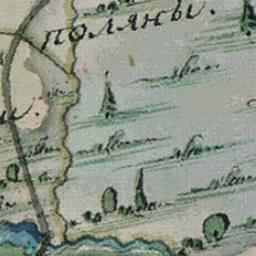 поляны.